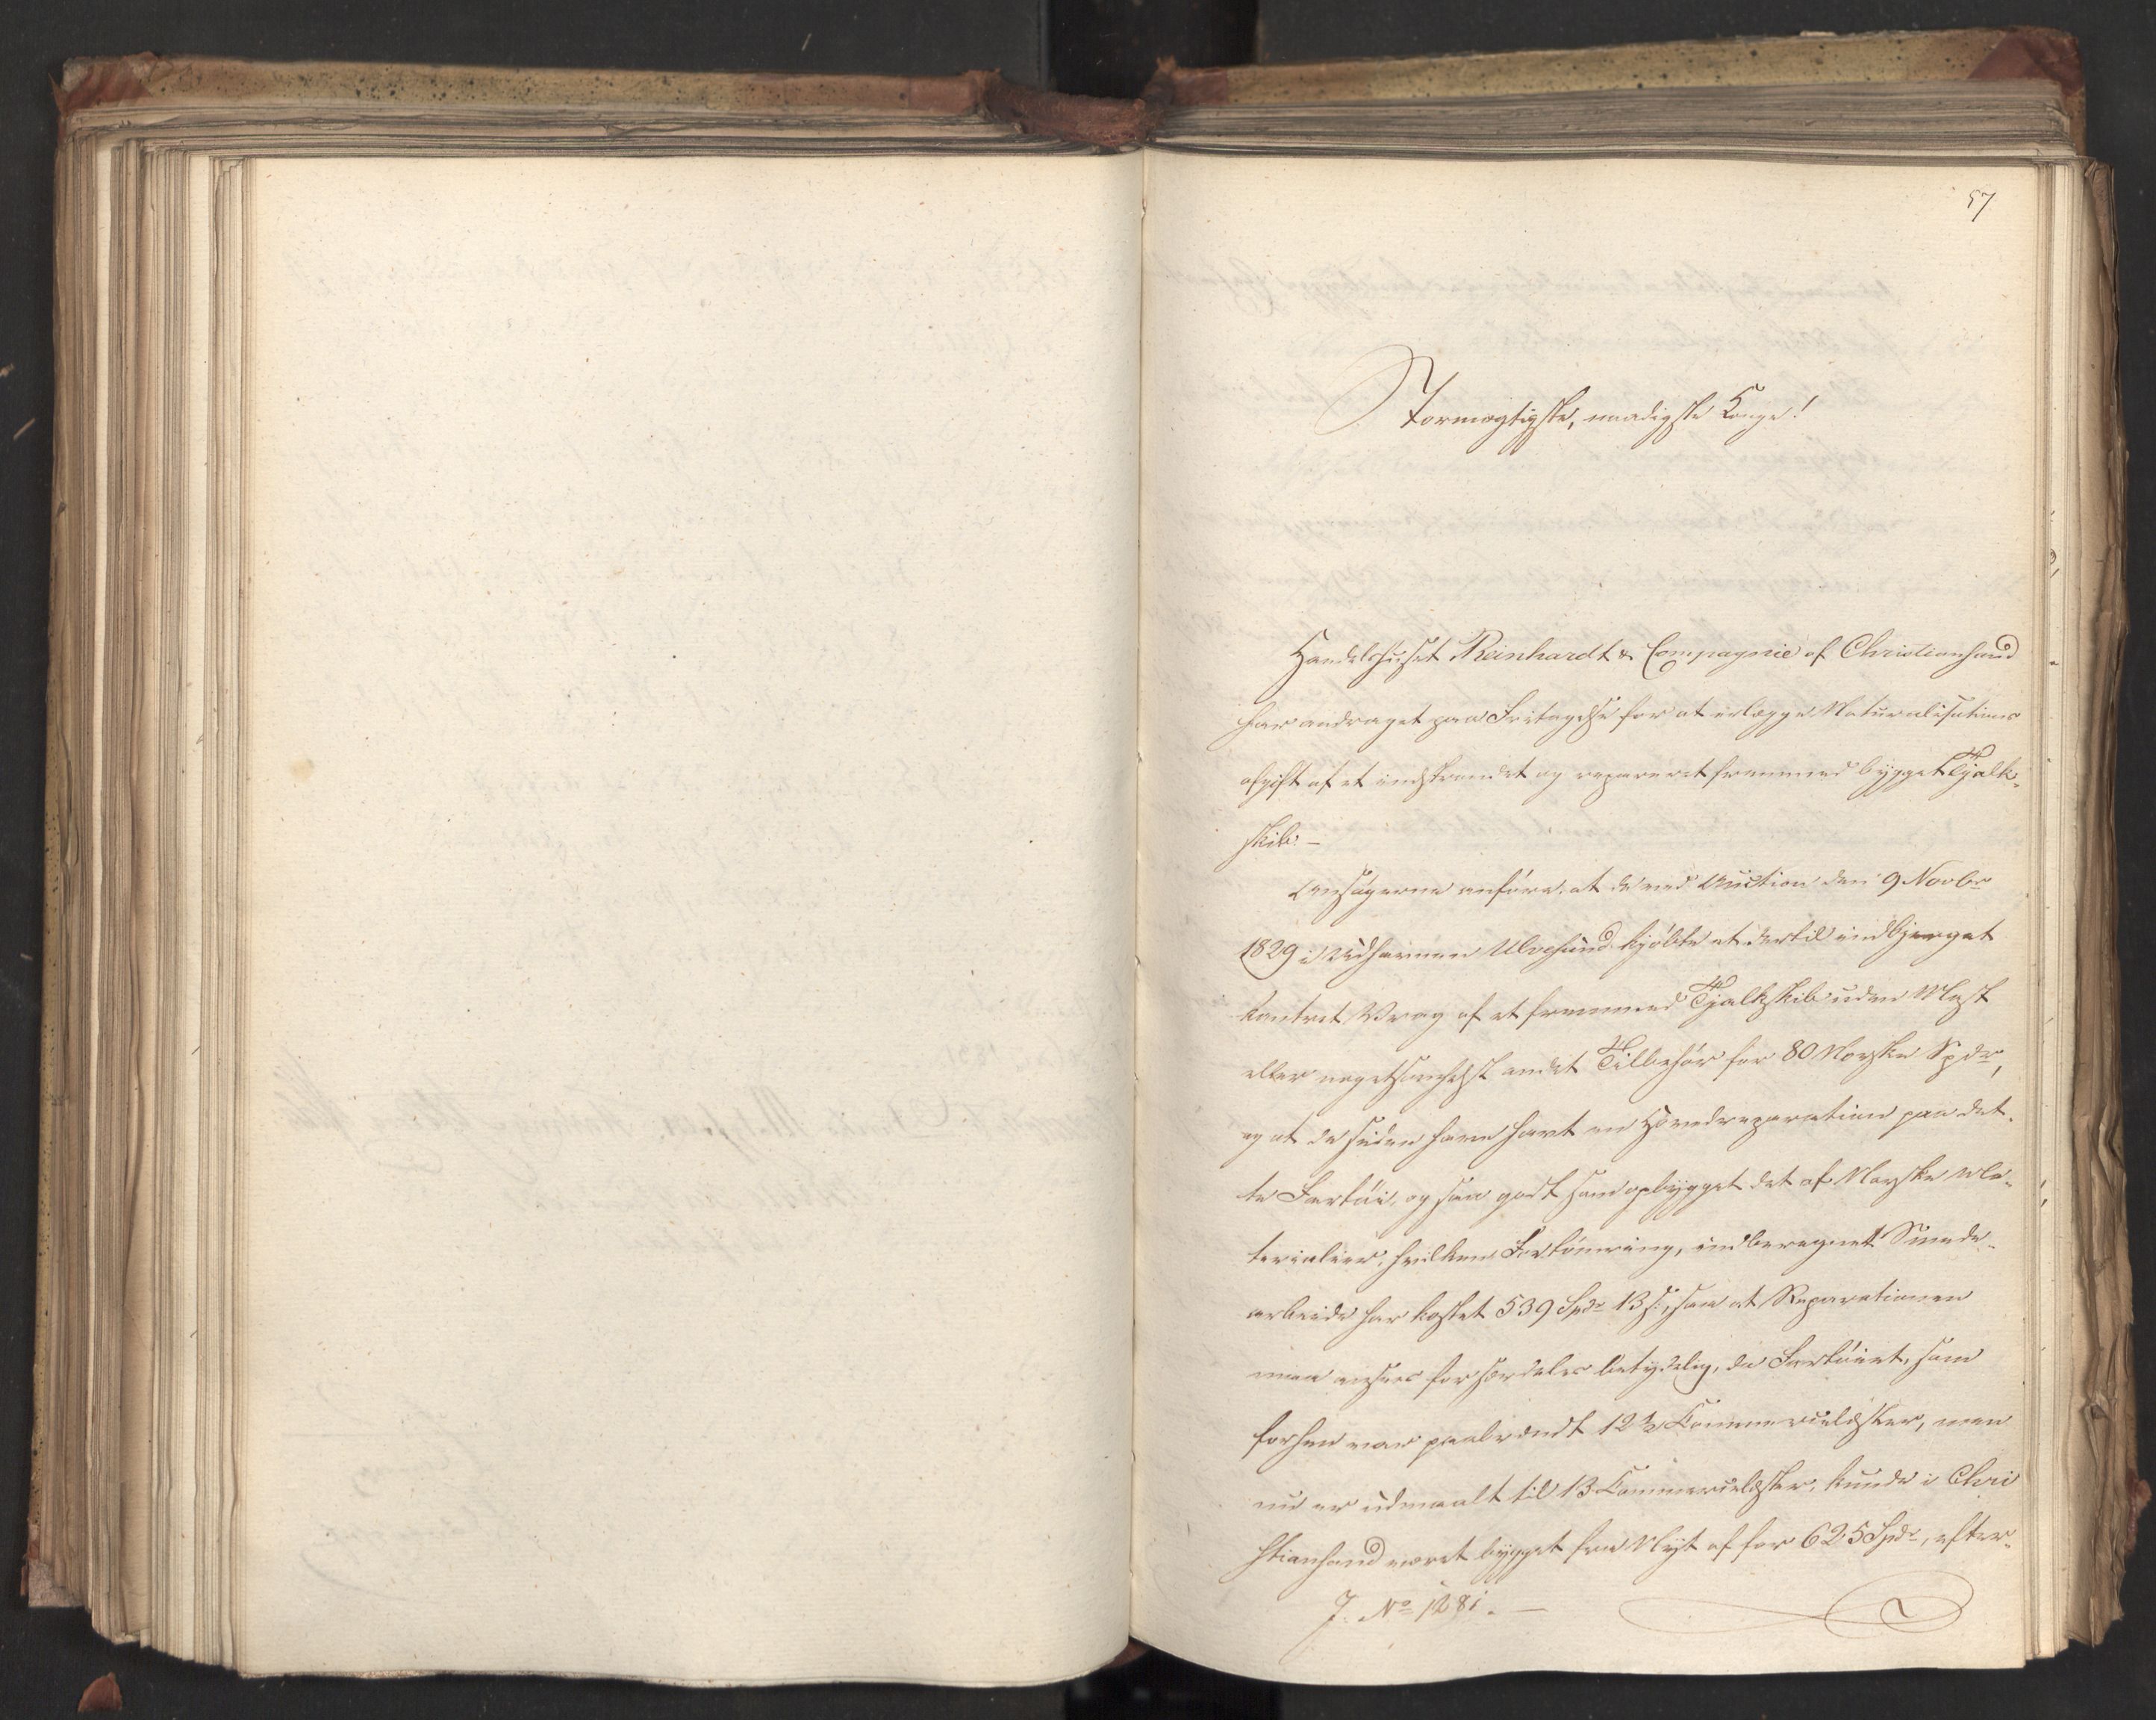 57
Stormægtigste, naadigste Konge!
Handelshuset Reinhardt & Compagnie af Christiansand
har andraget paa Fritagelse for at erlægge Naturalisations
afgift af et indstrandet og repareret fremmed bygget Tjalk-
skib. –
Ansøgerne anføre, at de ved Auction den 9 Novbr
1829 i Udhavnen Ulvøsund kjøbte et dertil indbjerget
kantret Vrag af et fremmed Tjalkskib uden Mast
eller nogetsomhelst andet Tilbehør for 80 Norske Spdr,
og at de siden have havt en Hovedreparation paa det-
te Fartøi, og saa godt som opbygget det af Norske Ma-
terialier, hvilken Fortømring, indberegnet Smede-
arbeide har kostet 539 Spdr 13 s:, saa at Reparationen
maa ansees for særdeles betydelig, da Fartøiet, som
forhen var paabrændt 12½ Commercelæster, men
nu er udmaalt til 13 Commercelæster, kunde i Chri
stiansand været bygget fra Nyt af for 625 Spdr, efter-
J. No 1281. –